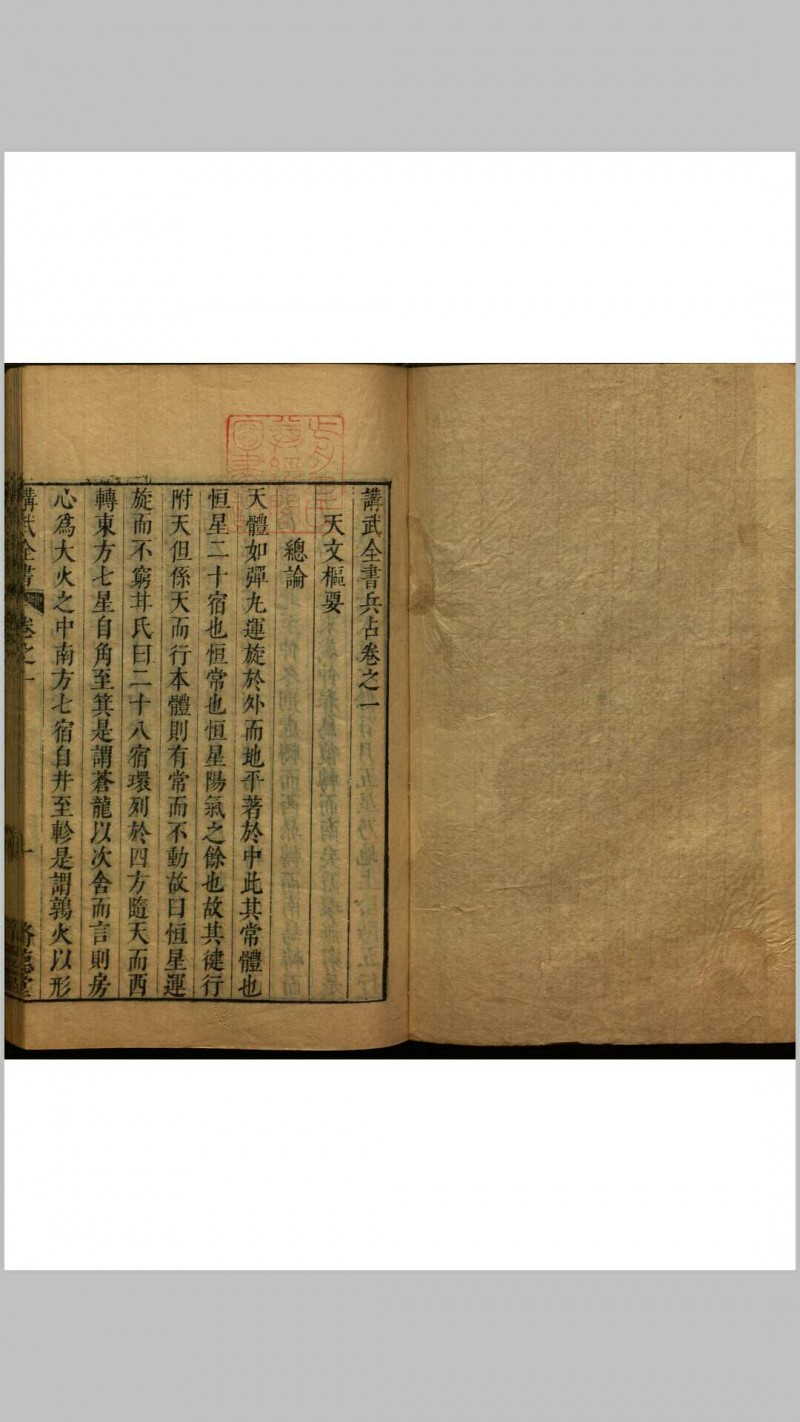 講武全書兵占卷之一
天文樞要
總論
天體如彈丸運旋於外而地平著於中此其常體也
恒星二十宿也恒常也恒星陽氣之餘也故其健行
附天但係天而行本體則有常而不動故曰恒星運
旋而不窮甘氏曰二十八宿環列於四方隨天而西
轉東方七星自角至箕是謂蒼龍以次舍而言則房
心為大火之中南方七宿自井至軫是謂鶉火以形
講武全書 卷之一